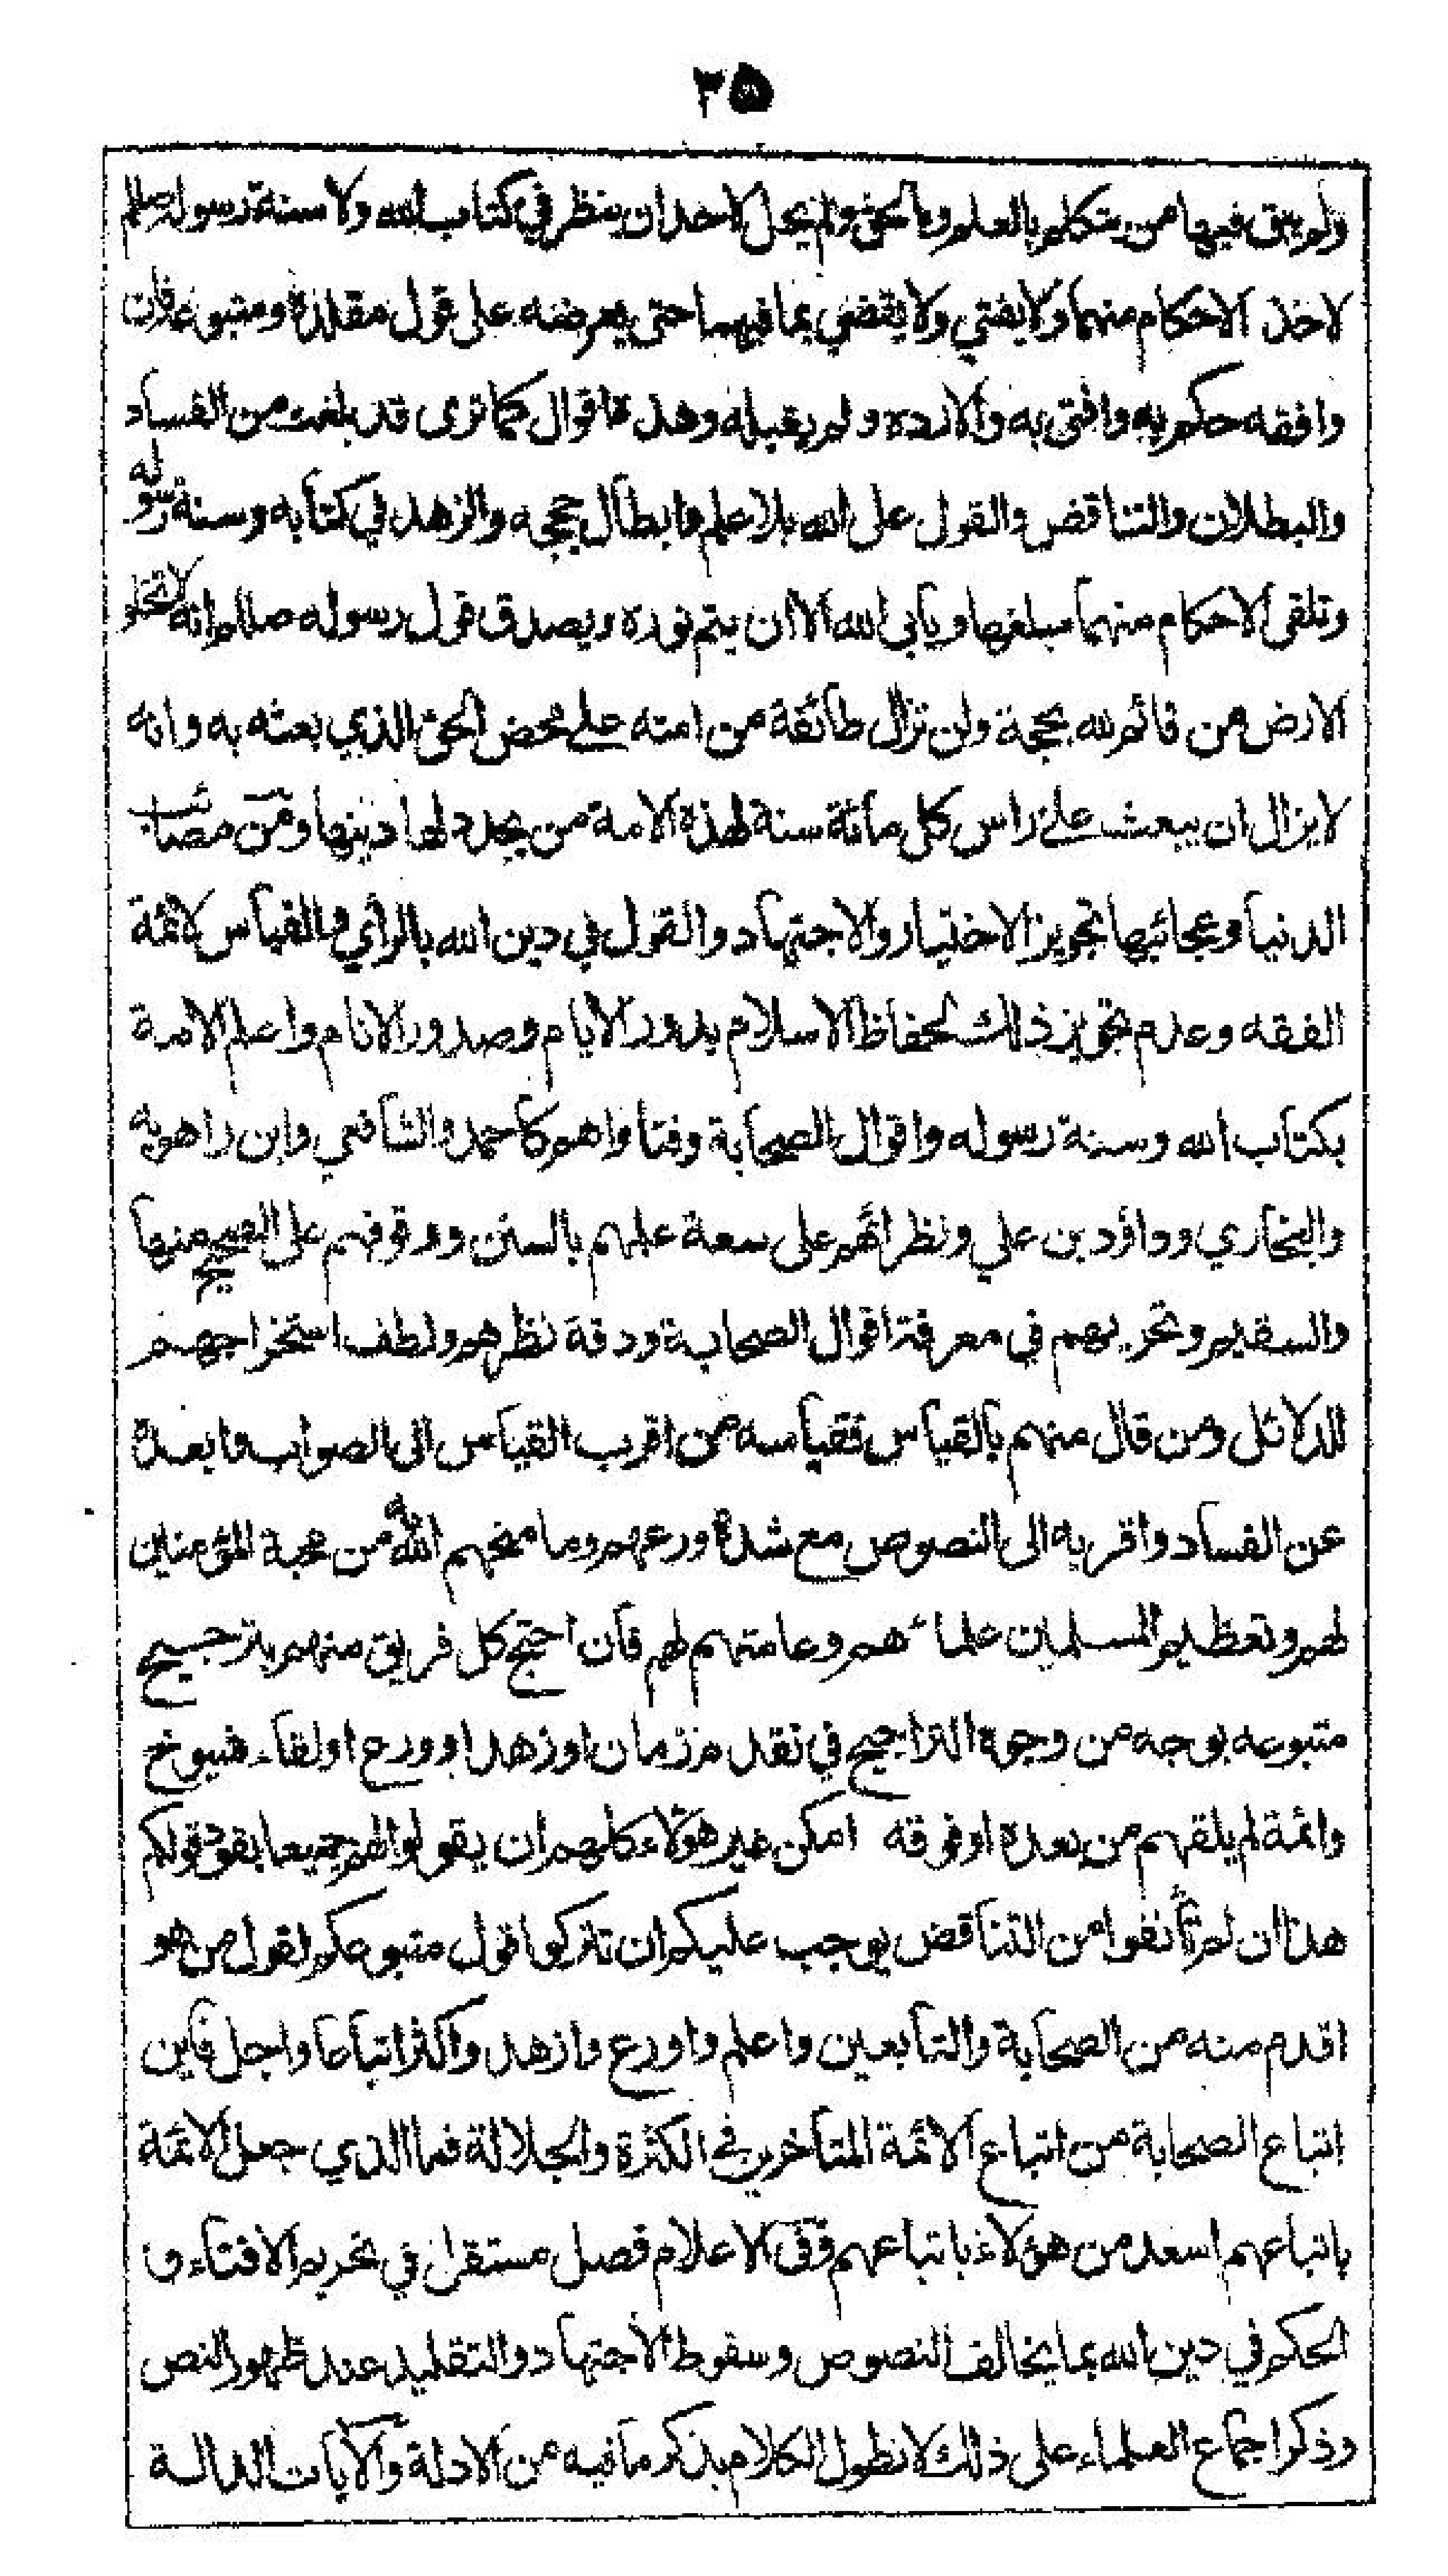 ٣٥
ولم يبق فيها من يتكلم بالعلم وبالحق ولم يحل لاحد ان ينظر في كتاب الله ولا سنة رسوله صلم
لاخذ الاحكام منهما ولا يفتي ولا يقضي بما فيهما حتى يعرضه على قول مقلده ومتبوعه فان
وافقه حكم به وافتى به والا رده ولم يقبله وهذه اقوال كما ترى قد بلغت من الفساد
والبطلان والتناقض والقول على الله بلا علم وابطال حججه والزهد في كتابه وسنة رسوله
وتلقى الاحكام منهما مبلغها ويأبى الله الا ان يتم نوره ويصدق قول رسوله صللم انه لا تخلو
الارض من قائم لله بحجة ولن تزال طائفة من امته على محض الحق الذي بعثه به وانه
لا يزال ان يبعث على راس كل مائة سنة لهذه الامة من يجدد لها دينها ومن مصائب
الدنيا وعجائبها تجويز الاختيار والاجتهاد والقول في دين الله بالرأي والقياس لائمة
الفقه وعدم تجويز ذلك لحفاظ الاسلام بدور الايام وصدور الانام واعلم الامة
بكتاب الله وسنة رسوله واقوال الصحابة وفتاواهم كاحمد والشافعي وابن راهويه
والبخاري وداؤد بن علي ونظرائهم على سعة علمهم بالسنن ووقوفهم على الصحيح منها
والسقيم وتحريهم في معرفة اقوال الصحابة ودقة نظرهم ولطف استخراجهم
للدلائل ومن قال منهم بالقياس فقياسه من اقرب القياس الى الصواب وابعده
عن الفساد واقربه الى النصوص مع شدة ورعهم وما منحهم الله من محبة المؤمنين
لهم وتعظيم المسلمين علمائهم وعامتهم لهم فان احتج كل فريق منهم بترجيح
متبوعه بوجه من وجوه التراجيح في تقدم زمان او زهد او ورع او لقاء شيوخ
وائمة لم يلقهم من بعده او فوقه امكن غير هؤلاء كلهم ان يقولوا لهم جميعا نفوذ قولكم
هذا ان لم تأنفوا من التناقض يوجب عليكم ان تتركوا قول متبوعكم لقول من هو
اقدم منه من الصحابة والتابعين واعلم واورع وازهد واكثر اتباعا واجل فاين
اتباع الصحابة من اتباع الائمة المتأخرين في الكثرة والجلالة فما الذي جعل الائمة
باتباعهم اسعد من هؤلاء باتباعهم وفى الاعلام فصل مستقل في تحريم الافتاء و
الحكم في دين الله بما يخالف النصوص وسقوط الاجتهاد والتقليد عند ظهور النص
وذكر اجماع العلماء على ذلك لا نطول الكلام بذكر ما فيه من الادلة والآيات الدالة